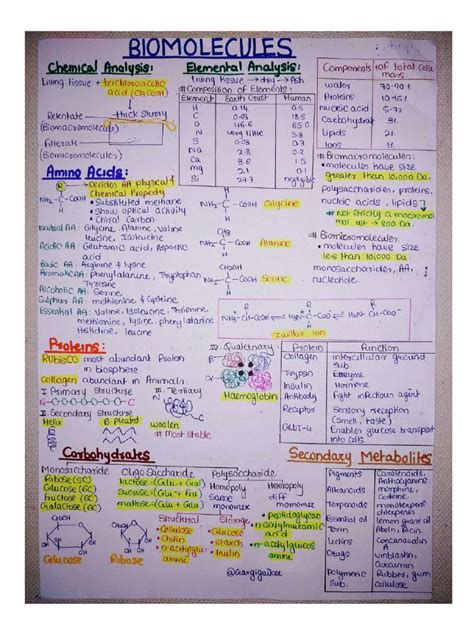 BIOMOLECULES
Chemical Analysis:
Living tissue + trichloroacetic
acid (Cl3CCOOH)
thick slurry
Retentate
(Biomacromolecules)
Filterate
(Biomicromolecules)
Elemental Analysis:
Living tissue → dry → Ash
# Composition of Elements:
Element Earth Crust Human
H 0.14 0.5
C 0.03 18.5
O 46.6 65.0
N very little
S 0.03 0.3
Na 2.8 0.2
Ca 3.6
Mg 2.1 0.1
Si 27.7 negligible
Components % of total cellular mass
Water 70-90%
Proteins 10-15%
Nucleic acid 5-7%
Carbohydrate 3%
Lipids 2%
Ions 1%
# Biomacromolecules:
• molecules have size
greater than 10,000 Da.
polysaccharides, proteins,
nucleic acids, lipids
# Not strictly a macromol
mol wt → 800 Da.
# Biomicromolecules:
• molecules have size
less than 10,000 Da.
monosaccharides, AA,
nucleotide
Amino Acids:
R → Decides AA physical &
Chemical Property
• Substituted methane
• Show optical activity
• Chiral Carbon
Neutral AA: Glycine, Alanine, Valine
leucine, Isoleucine
Acidic AA: Glutamic acid, Aspartic
acid
Basic AA: Arginine & lysine
Aromatic AA: phenylalanine, Tryptophan
Tyrosine
Alcoholic AA: Serine
Sulphur AA: methionine & cysteine
Essential AA: Valine, Isoleucine, Threonine
methionine, lysine, phenylalanine
Histidine, leucine
NH2-C-COOH Glycine
NH2-C-COOH Alanine
NH2-C-COOH Serine
Zwitter ion
Proteins:
RUBISCO most abundant Protein
in biosphere
Collagen abundant in Animals.
I. Primary Structure
II. Secondary Structure
Helix B-Pleated
III. Tertiary
woolen
# Most stable
IV. Quaternary
Haemoglobin
Protein Function
Collagen Intercellular ground
Sub.
Trypsin Enzyme
Insulin Hormone
Antibody Fight infectious agent
Receptor Sensory reception
(Smell, taste)
GLUT-4 Enable glucose transport
into cells
Carbohydrates
Monosaccharide
Ribose (5C)
Glucose (6C)
Fructose (6C)
Galactose (6C)
Glucose Ribose
Oligosaccharide
lactose = (Glu + Gal)
Sucrose = (Glu + Fru)
maltose = (Glu + Glu)
Polysaccharide
Homopoly Heteropoly
Same diff
monomer monomer
Structural
• Cellulose
• Chitin
Storage
• Glucose
• starch
• Inulin
• peptidoglycan
• n-acetylmuramic
acid
• n-acetylglucos
amine
@Gargigaukee
Secondary Metabolites
Pigments Carotenoids,
Anthocyanins
Alkanoids morphine,
Codeine
Terpenoids monoterpenes
diterpenes
Essential oil lemon grass oil
Toxin Abrin, Ricin
Lectins Concanavalin
A
Drugs vinblastin,
curcumin
Polymeric Rubber, gum
Sub. cellulose